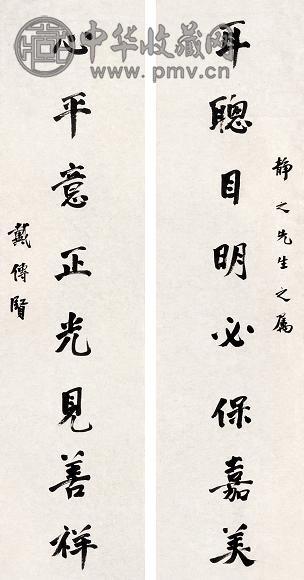 中华收藏网
www.pmv.cn
静之先生之属
耳聰目明必保嘉美
心平意正光見善祥
戴傳賢